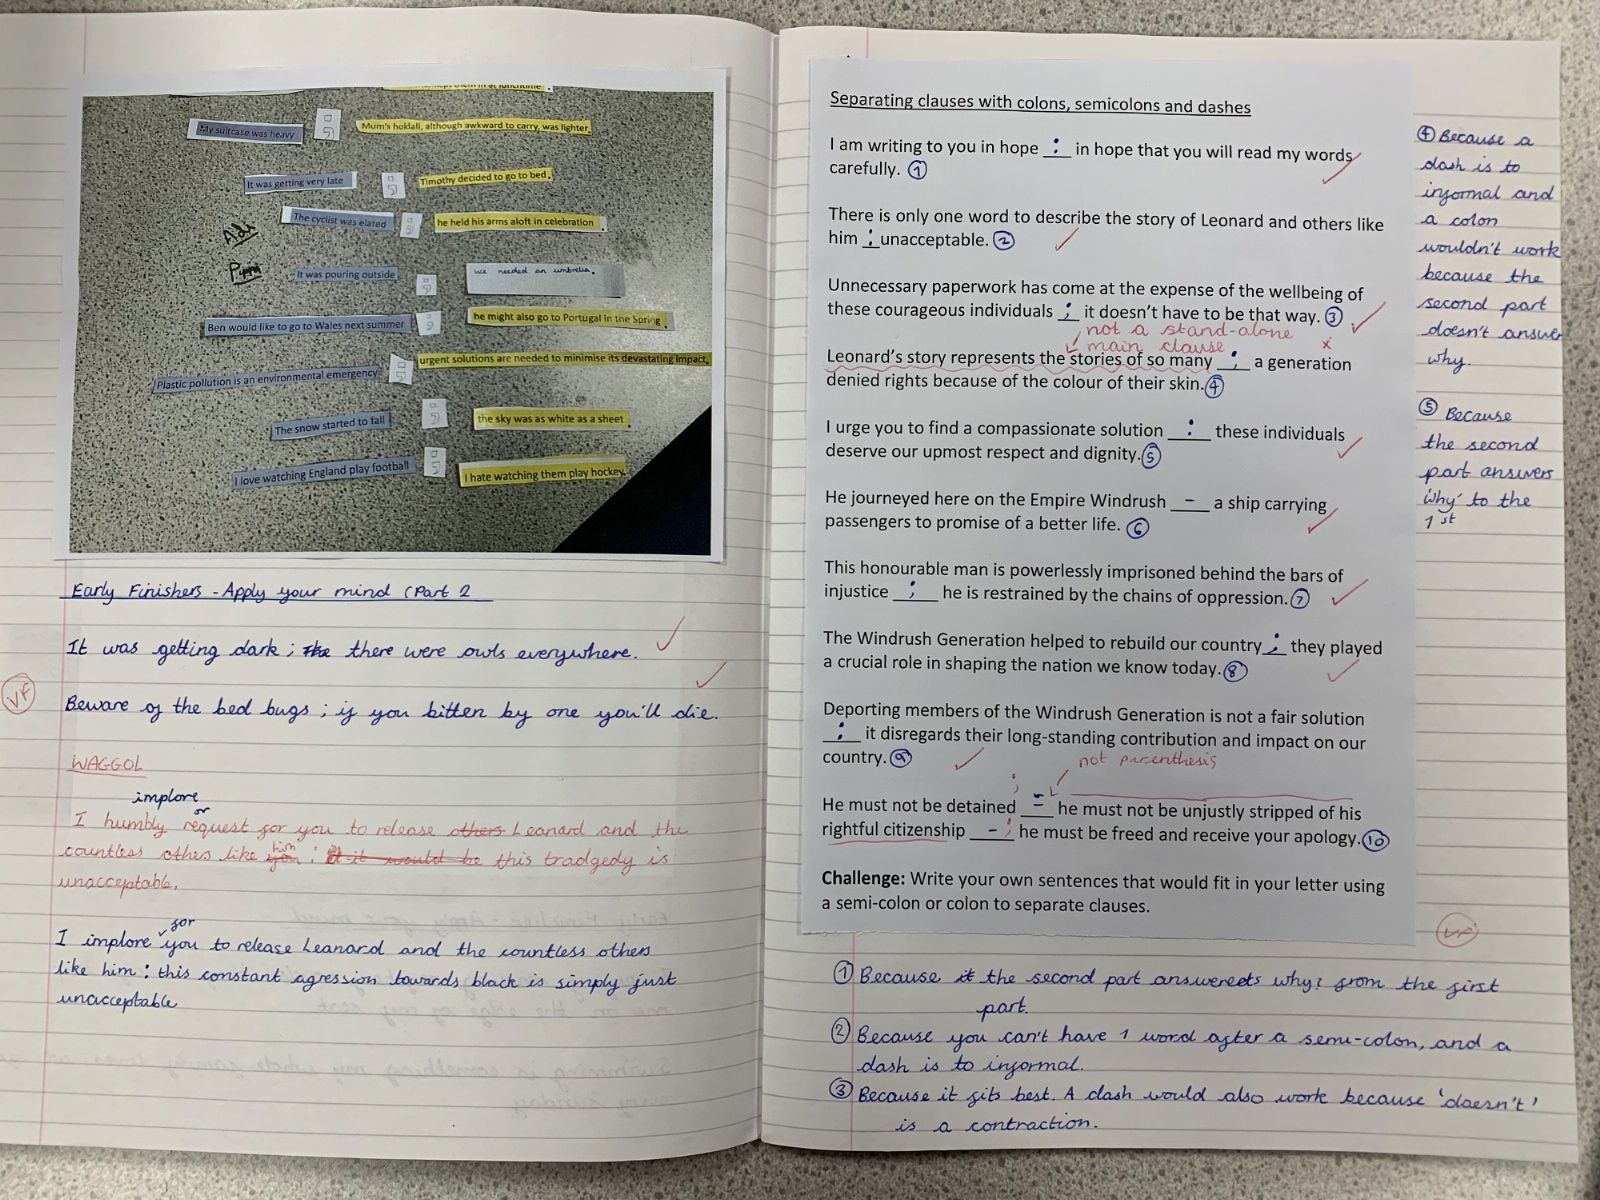 My suitcase was heavy ; Mum's holdall, although awkward to carry, was lighter.
It was getting very late ; Timothy decided to go to bed.
The cyclist was elated ; he held his arms aloft in celebration .
It was pouring outside ; we needed an umbrella.
Ben would like to go to Wales next summer ; he might also go to Portugal in the Spring .
Plastic pollution is an environmental emergency ; urgent solutions are needed to minimise its devastating impact.
The snow started to fall ; the sky was as white as a sheet .
I love watching England play football ; I hate watching them play hockey.
Early Finishers - Apply your mind (Part 2
It was getting dark ; there were owls everywhere.
VF
Beware of the bed bugs ; if you bitten by one you'll die.
WAGGOLL
implore
or
I humbly request for you to release others Leonard and the
him
countless others like you : it would be this tradgedy is
unacceptable.
for
I implore you to release Leanard and the countless others
like him : this constant agression towards black is simply just
unacceptable
Separating clauses with colons, semicolons and dashes
I am writing to you in hope : in hope that you will read my words
carefully. 1
There is only one word to describe the story of Leonard and others like
him : unacceptable. 2
Unnecessary paperwork has come at the expense of the wellbeing of
these courageous individuals ; it doesn't have to be that way. 3
not a stand-alone
main clause
Leonard's story represents the stories of so many ; a generation
denied rights because of the colour of their skin. 4
I urge you to find a compassionate solution : these individuals
deserve our upmost respect and dignity. 5
He journeyed here on the Empire Windrush - a ship carrying
passengers to promise of a better life. 6
This honourable man is powerlessly imprisoned behind the bars of
injustice ; he is restrained by the chains of oppression. 7
The Windrush Generation helped to rebuild our country ; they played
a crucial role in shaping the nation we know today. 8
Deporting members of the Windrush Generation is not a fair solution
: it disregards their long-standing contribution and impact on our
country. 9
not parenthesis
;
He must not be detained - he must not be unjustly stripped of his
rightful citizenship - ; he must be freed and receive your apology. 10
Challenge: Write your own sentences that would fit in your letter using
a semi-colon or colon to separate clauses.
VF
4 Because a
dash is to
informal and
a colon
wouldn't work
because the
second part
doesn't answer
why.
5 Because
the second
part answers
'why' to the
1st
1 Because it the second part answereets why? from the first
part.
2 Because you can't have 1 word after a semi-colon, and a
dash is to informal.
3 Because it fits best. A dash would also work because 'doesn't'
is a contraction.